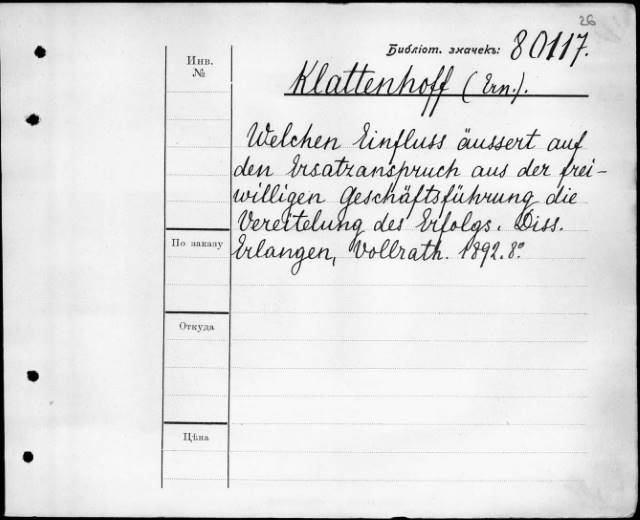 26
Библіот. значекъ: 80117.
Инв.
№
Klattenhoff (Ern.).
Welchen Einfluss äussert auf
den Ersatzanspruch aus der frei-
willigen Geschäftsführung die
Vereitelung des Erfolgs. Diss.
Erlangen, Vollrath. 1892. 8º
По заказу
Откуда
Цѣна